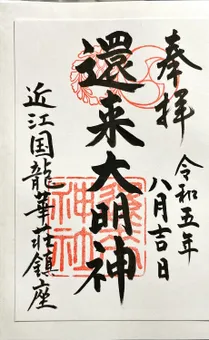 奉拝
令和五年
八月吉日
還来大明神
近江国龍華荘鎮座
還来
神社